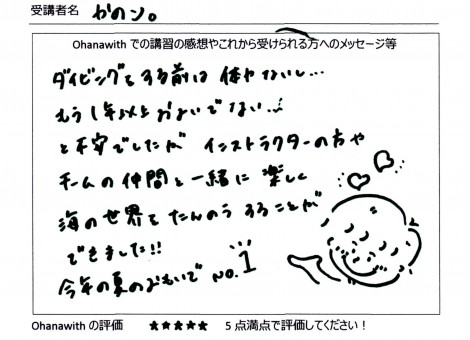 受講者名 かのン。
Ohanawith での講習の感想やこれから受けられる方へのメッセージ等
ダイビングをする前は 体力ないし…
もう1年以上およいでない…
と不安でしたが インストラクターの方や
チームの仲間と一緒に 楽しく
海の世界をたんのうすることが
できました!!
今年の夏のおもいで NO.1
Ohanawith の評価 ★★★★★ 5 点満点で評価してください！